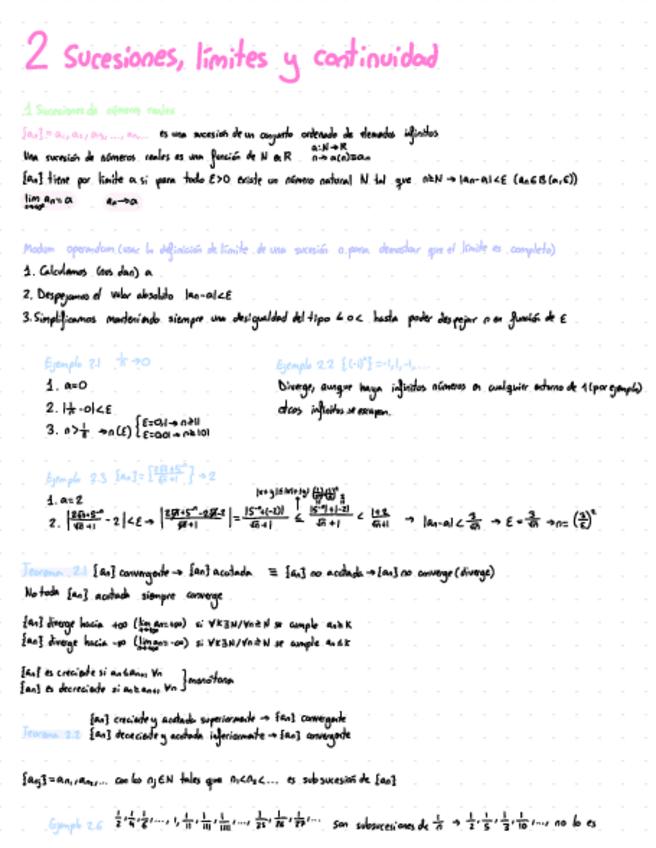 2 Sucesiones, límites y continuidad
1 Sucesiones de números reales
{an} = a1, a2, a3, ..., an, ... es una sucesión de un conjunto ordenado de elementos infinitos
a: N→R
Una sucesión de números reales es una función de N a R n→a(n)≡an
{an} tiene por límite a si para todo ε>0 existe un número natural N tal que n≥N → |an-a|<ε (an∈B(a,ε))
lim an=a an→a
Modum operandum (usar la definición de límite de una sucesión a para demostrar que el límite es completo)
1. Calculamos (nos dan) a
2. Despejamos el valor absoluto |an-a|<ε
3. Simplificamos manteniendo siempre una desigualdad del tipo ≤ o < hasta poder despejar n en función de ε
Ejemplo 2.1 1/n →0
1. a=0
2. |1/n - 0|<ε
3. n>1/ε →n(ε) { ε=0,1→ n≥11
ε=0,01→ n≥101
Ejemplo 2.2 {(-1)^n}=-1,1,-1,...
Diverge, aunque haya infinitos números en cualquier entorno de 1 (por ejemplo)
otros infinitos se escapan.
Ejemplo 2.3 {an} = →2
1. a=2
2. → |an-a|< 3/√n → ε= 3/√n → n= (3/ε)²
Teorema 2.1 {an} convergente → {an} acotada ≡ {an} no acotada → {an} no converge (diverge)
No toda {an} acotada siempre converge
{an} diverge hacia +∞ (lim an=+∞) si ∀K∃N/∀n≥N se cumple an≥K
{an} diverge hacia -∞ (lim an=-∞) si ∀K∃N/∀n≥N se cumple an≤K
{an} es creciente si an≤an+1 ∀n
{an} es decreciente si an≥an+1 ∀n } monótona
{an} creciente y acotada superiormente → {an} convergente
Teorema 2.2 {an} decreciente y acotada inferiormente → {an} convergente
{anj}=an1, an2, ... con los nj∈N tales que n1<n2<... es subsucesión de {an}
Ejemplo 2.6 1/2, 1/4, 1/6, ..., 1, 1/11, 1/111, 1/1111, ..., 1/25, 1/26, 1/27, ... son subsucesiones de 1/n → 1/2, 1/5, 1/3, 1/10, ..., no lo es